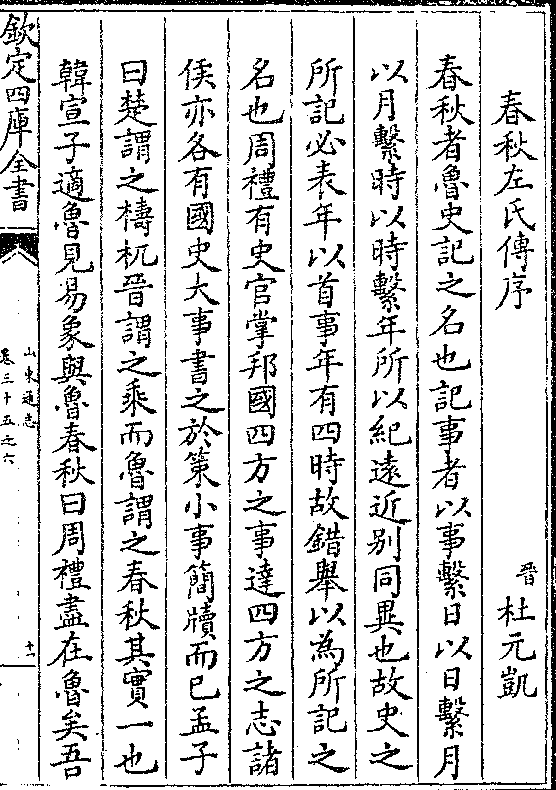 春秋左氏傳序
晉 杜元凱
春秋者魯史記之名也記事者以事繫日以日繫月
以月繫時以時繫年所以紀遠近别同異也故史之
所記必表年以首事年有四時故錯舉以為所記之
名也周禮有史官掌邦國四方之事達四方之志諸
侯亦各有國史大事書之於策小事簡牘而已孟子
曰楚謂之檮杌晉謂之乘而魯謂之春秋其實一也
韓宣子適魯見易象與魯春秋曰周禮盡在魯矣吾
欽定四庫全書
山東通志
卷三十五之六
十一